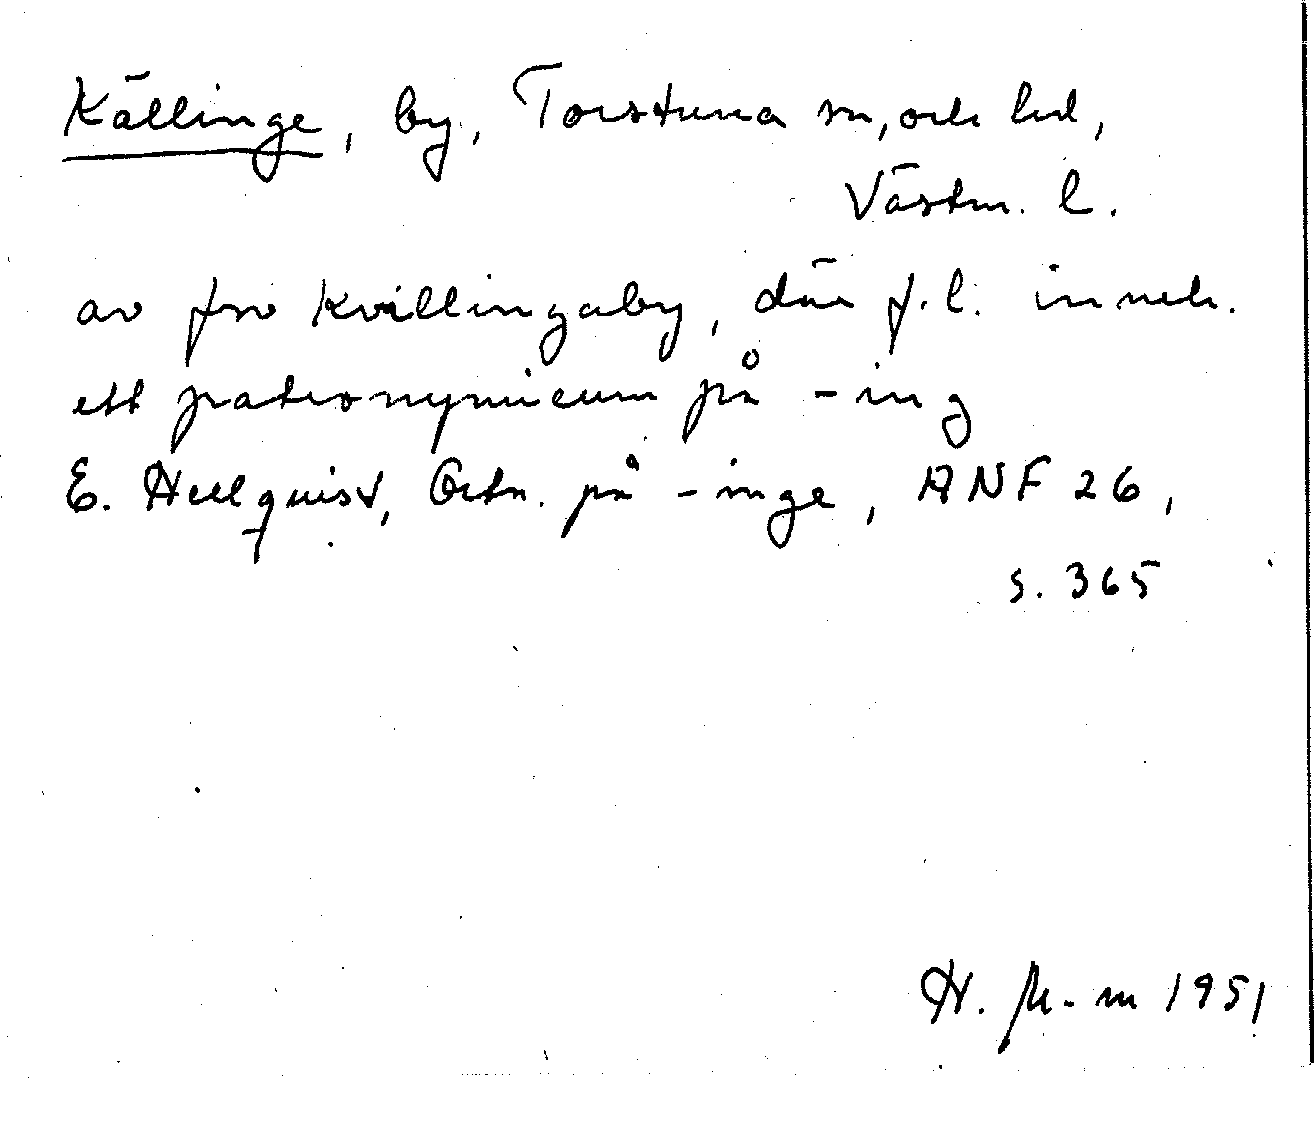 Källinge, by, Torstuna sn, och hd,
Västm. l.
av fsv Kvillingaby, där f.l. inneh.
ett patronymicum på -ing
E. Hellquist, Ortn. på -inge, ANF 26,
s. 365
H. M-m 1951